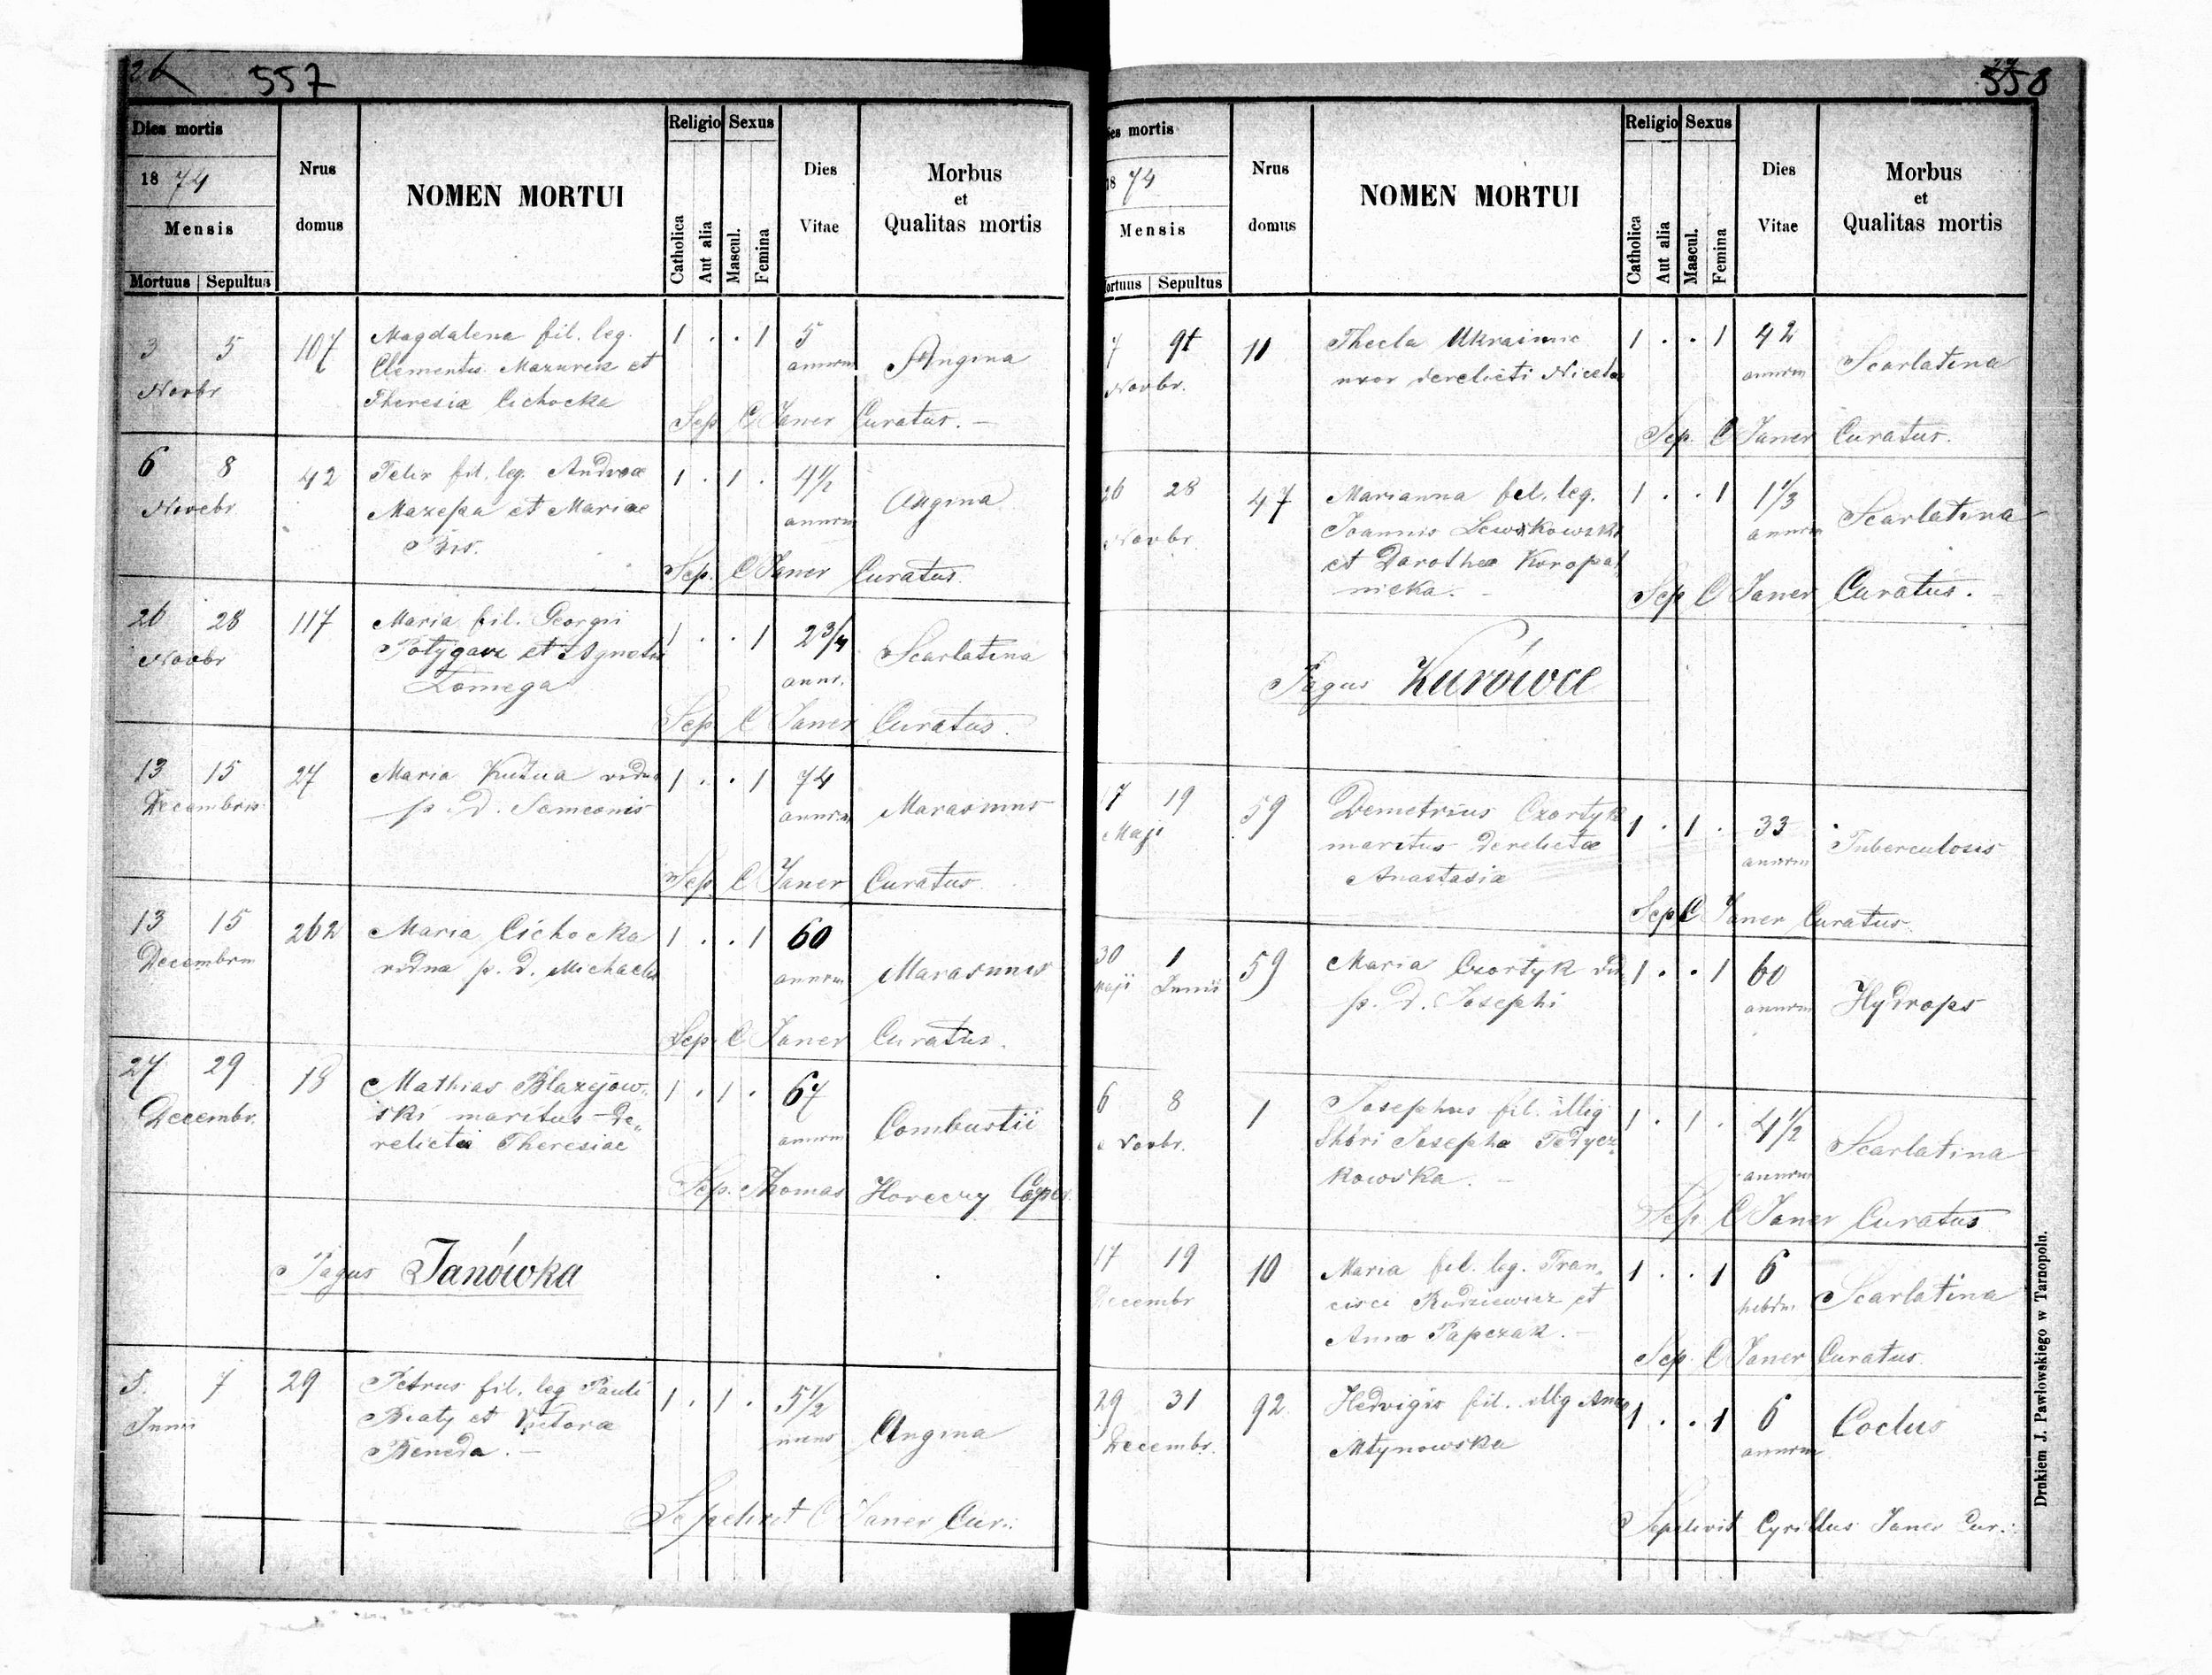 557
Dies mortis
1874
Mensis
Mortuus Sepultus
Nrus domus
NOMEN MORTUI
Religio Sexus
Catholica Aut alia Mascul. Femina
Dies Vitae
Morbus et Qualitas mortis
3 5 107 Magdalena fil. leg. 1 . . 1 5
Novbr Clementis Mazurek et annrm Angina
Theresiæ Cichocka
Sep C Janer Curatus. —
6 8 42 Felix fil. leg. Andreæ 1 . 1 . 4 1/2
Novebr Mazepa et Mariae annrm Angina
Bis.
Sep. C Janer Curatus.
26 28 117 Maria fil. Georgii 1 . . 1 2 3/4
Novbr et Agnetis annr. Scarlatina
Lomega
Sep C Janer Curatus.
13 15 27 Maria Kutua vidua 1 . . 1 74
Decembris p. d. Semeonis annrm Marasmus
Sep C Janer Curatus.
13 15 262 Maria Cichocka 1 . . 1 60
Decembrm vidua p. d. Michaelis annrm Marasmus
Sep. C Janer Curatus.
27 29 18 Mathias Blazejow- 1 . 1 . 67
Decembr. ski maritus de„ annrm Combustii
relictæ Theresiae
Sep. Thomas
Pagus Janówka
5. 7 29 Petrus fil. leg Pauli 1 . 1 . 5 1/2
Junii Biaty et Victoræ mens Angina
Beneda. —
Sepelivit C Janer Cur.:
558
es mortis
1874
Mensis
ortuus Sepultus
Nrus domus
NOMEN MORTUI
Religio Sexus
Catholica Aut alia Mascul. Femina
Dies Vitae
Morbus et Qualitas mortis
7 9t 11 Thecla 1 . . 1 42
Novbr. uxor derelicti Nicetae annrm Scarlatina
Sep. C Janer Curatus.
26 28 47 Marianna fil. leg. 1 . . 1 1 1/3
Novbr. Joannis Lewskowski annrm Scarlatina
et Dorothea Koropat
nicka. -
Sep C Janer Curatus. -
Pagus Kurówce
17 19 59 Demetrius Czortyk 1 . 1 . 33
Maji maritus derelictæ annrm Tuberculosis
Anastasiæ
Sep C Janer Curatus.
30 1 59 Maria Czortyk vid 1 . . 1 60
Maji Junii p. d. Josephi annrm Hydrops
6 8 1 Josephus fil. illig 1 . 1 . 4 1/2
Novbr. Josepha Fedycz annrm Scarlatina
kowska. -
Sep C Janer Curatus
17 19 10 Maria fil. leg. Fran„ 1 . . 1 6
Decembr cisci Rudziewicz et hebdm. Scarlatina
Anna Papczak. -
Sep. C Janer Curatus.
29 31 92 Hedvigis fil. illig Annae 1 . . 1 6 Coclus
Decembr. Młynowska annrm
Sepelivit Cyrillus Janer Cur.:
Drukiem J. Pawłowskiego w Tarnopolu.